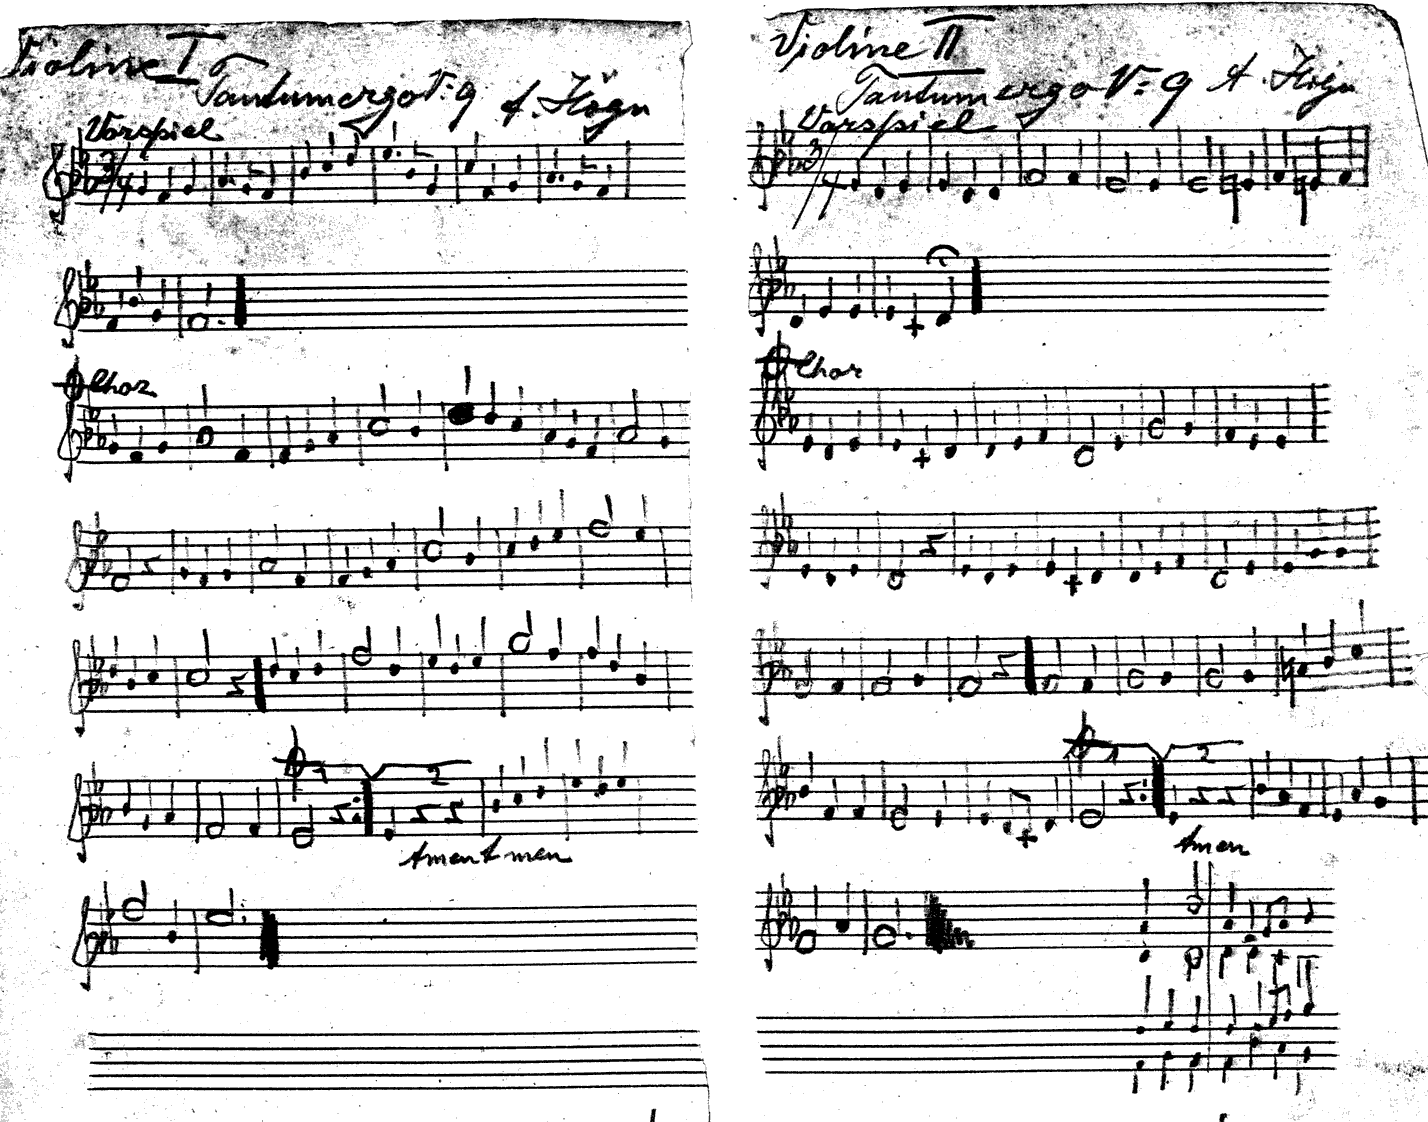 Violine I
Tantum ergo Nº 9 A. Högn
Vorspiel
3/4
Chor
1 2
Amen Amen
Violine II
Tantum ergo Nº 9 A. Högn
Vorspiel
3/4
Chor
1 2
Amen